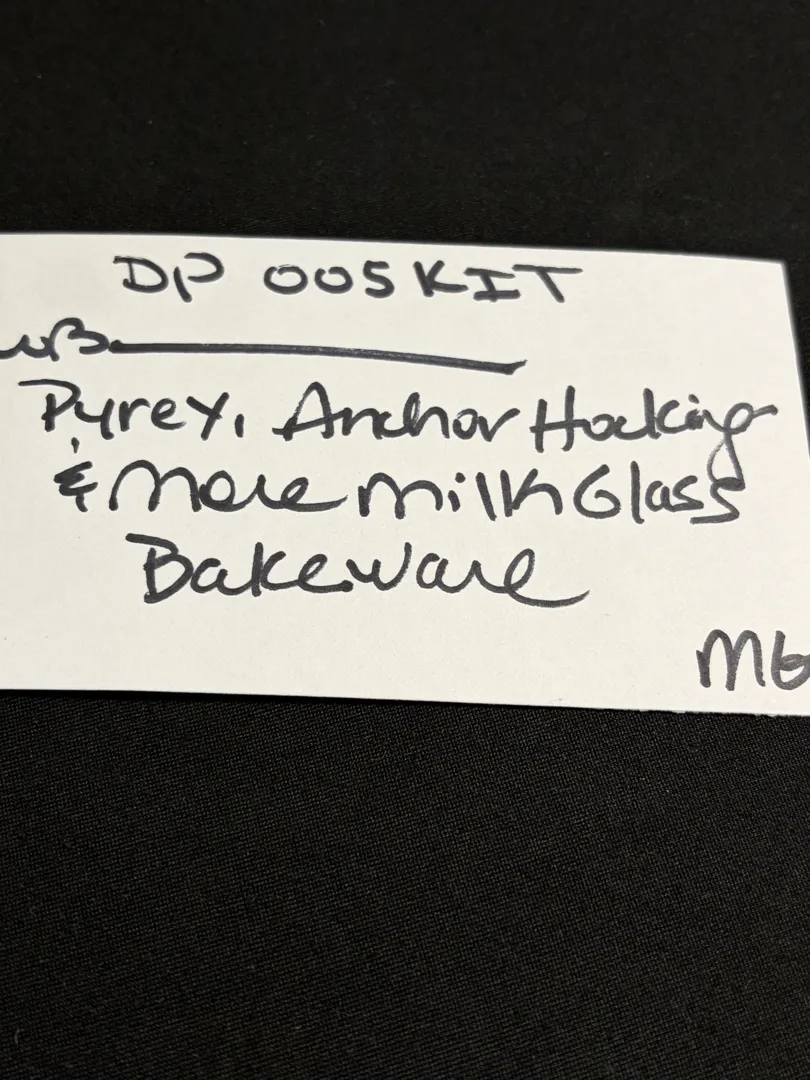 DP 005 KIT
Pyrex, Anchor Hocking
& More Milk Glass
Bakeware